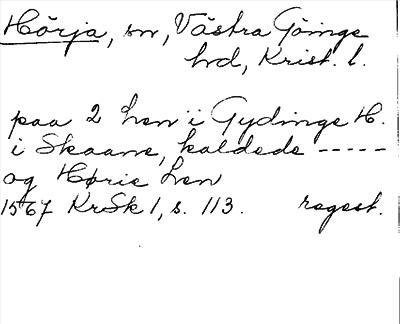 Hörja, sn, Västra Göinge
hd, Krist. l.
paa 2 Len i Gydinge H.
i Skaane, kaldede -----
og Hørie Len
1567 KrSk 1, s. 113. regest.